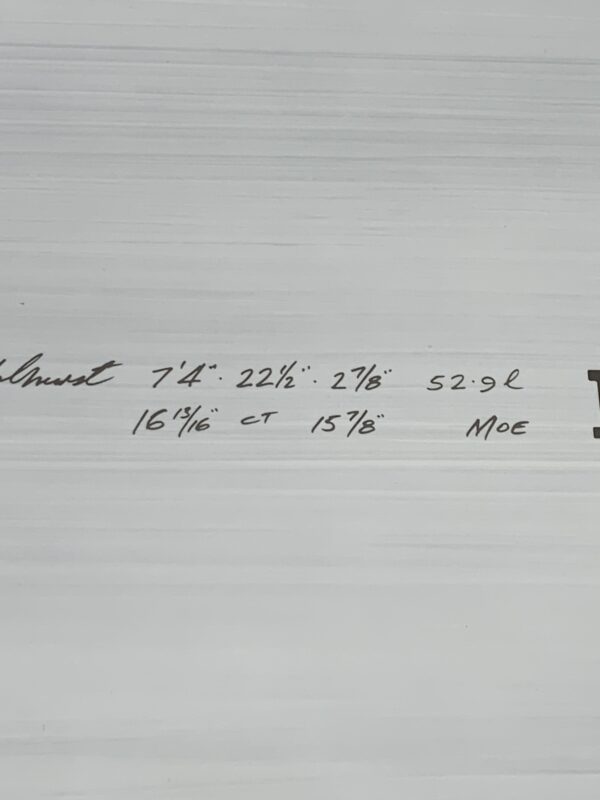 7'4" · 22 1/2" · 2 7/8" 52.9l
16 13/16" CT 15 7/8" MOE